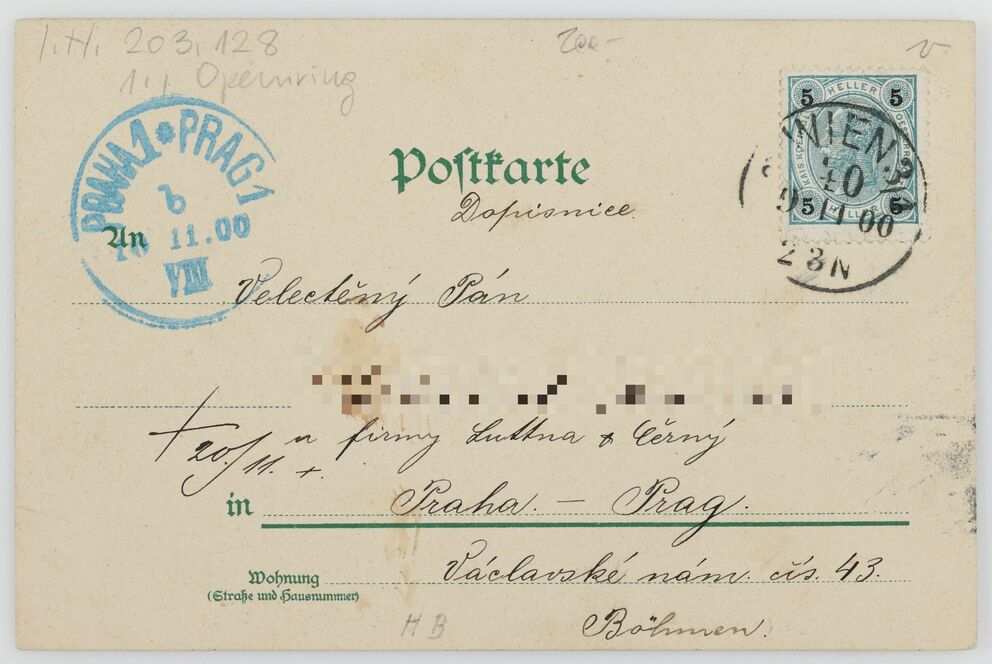 I.N. 203.128
1., Opernring
200-
v
PRAHA 1 * PRAG 1
b
10 11.00
VIII
5 HELLER 5
5 HELLER 5
WIEN
9 11 00
2 3 N
Postkarte
Dopisnice.
An
Velectěný Pán
u firmy Luttna & Černý
20./11. +
in Praha. – Prag.
Wohnung
(Straße und Hausnummer)
Václavské nám. čís. 43.
HB
Böhmen.